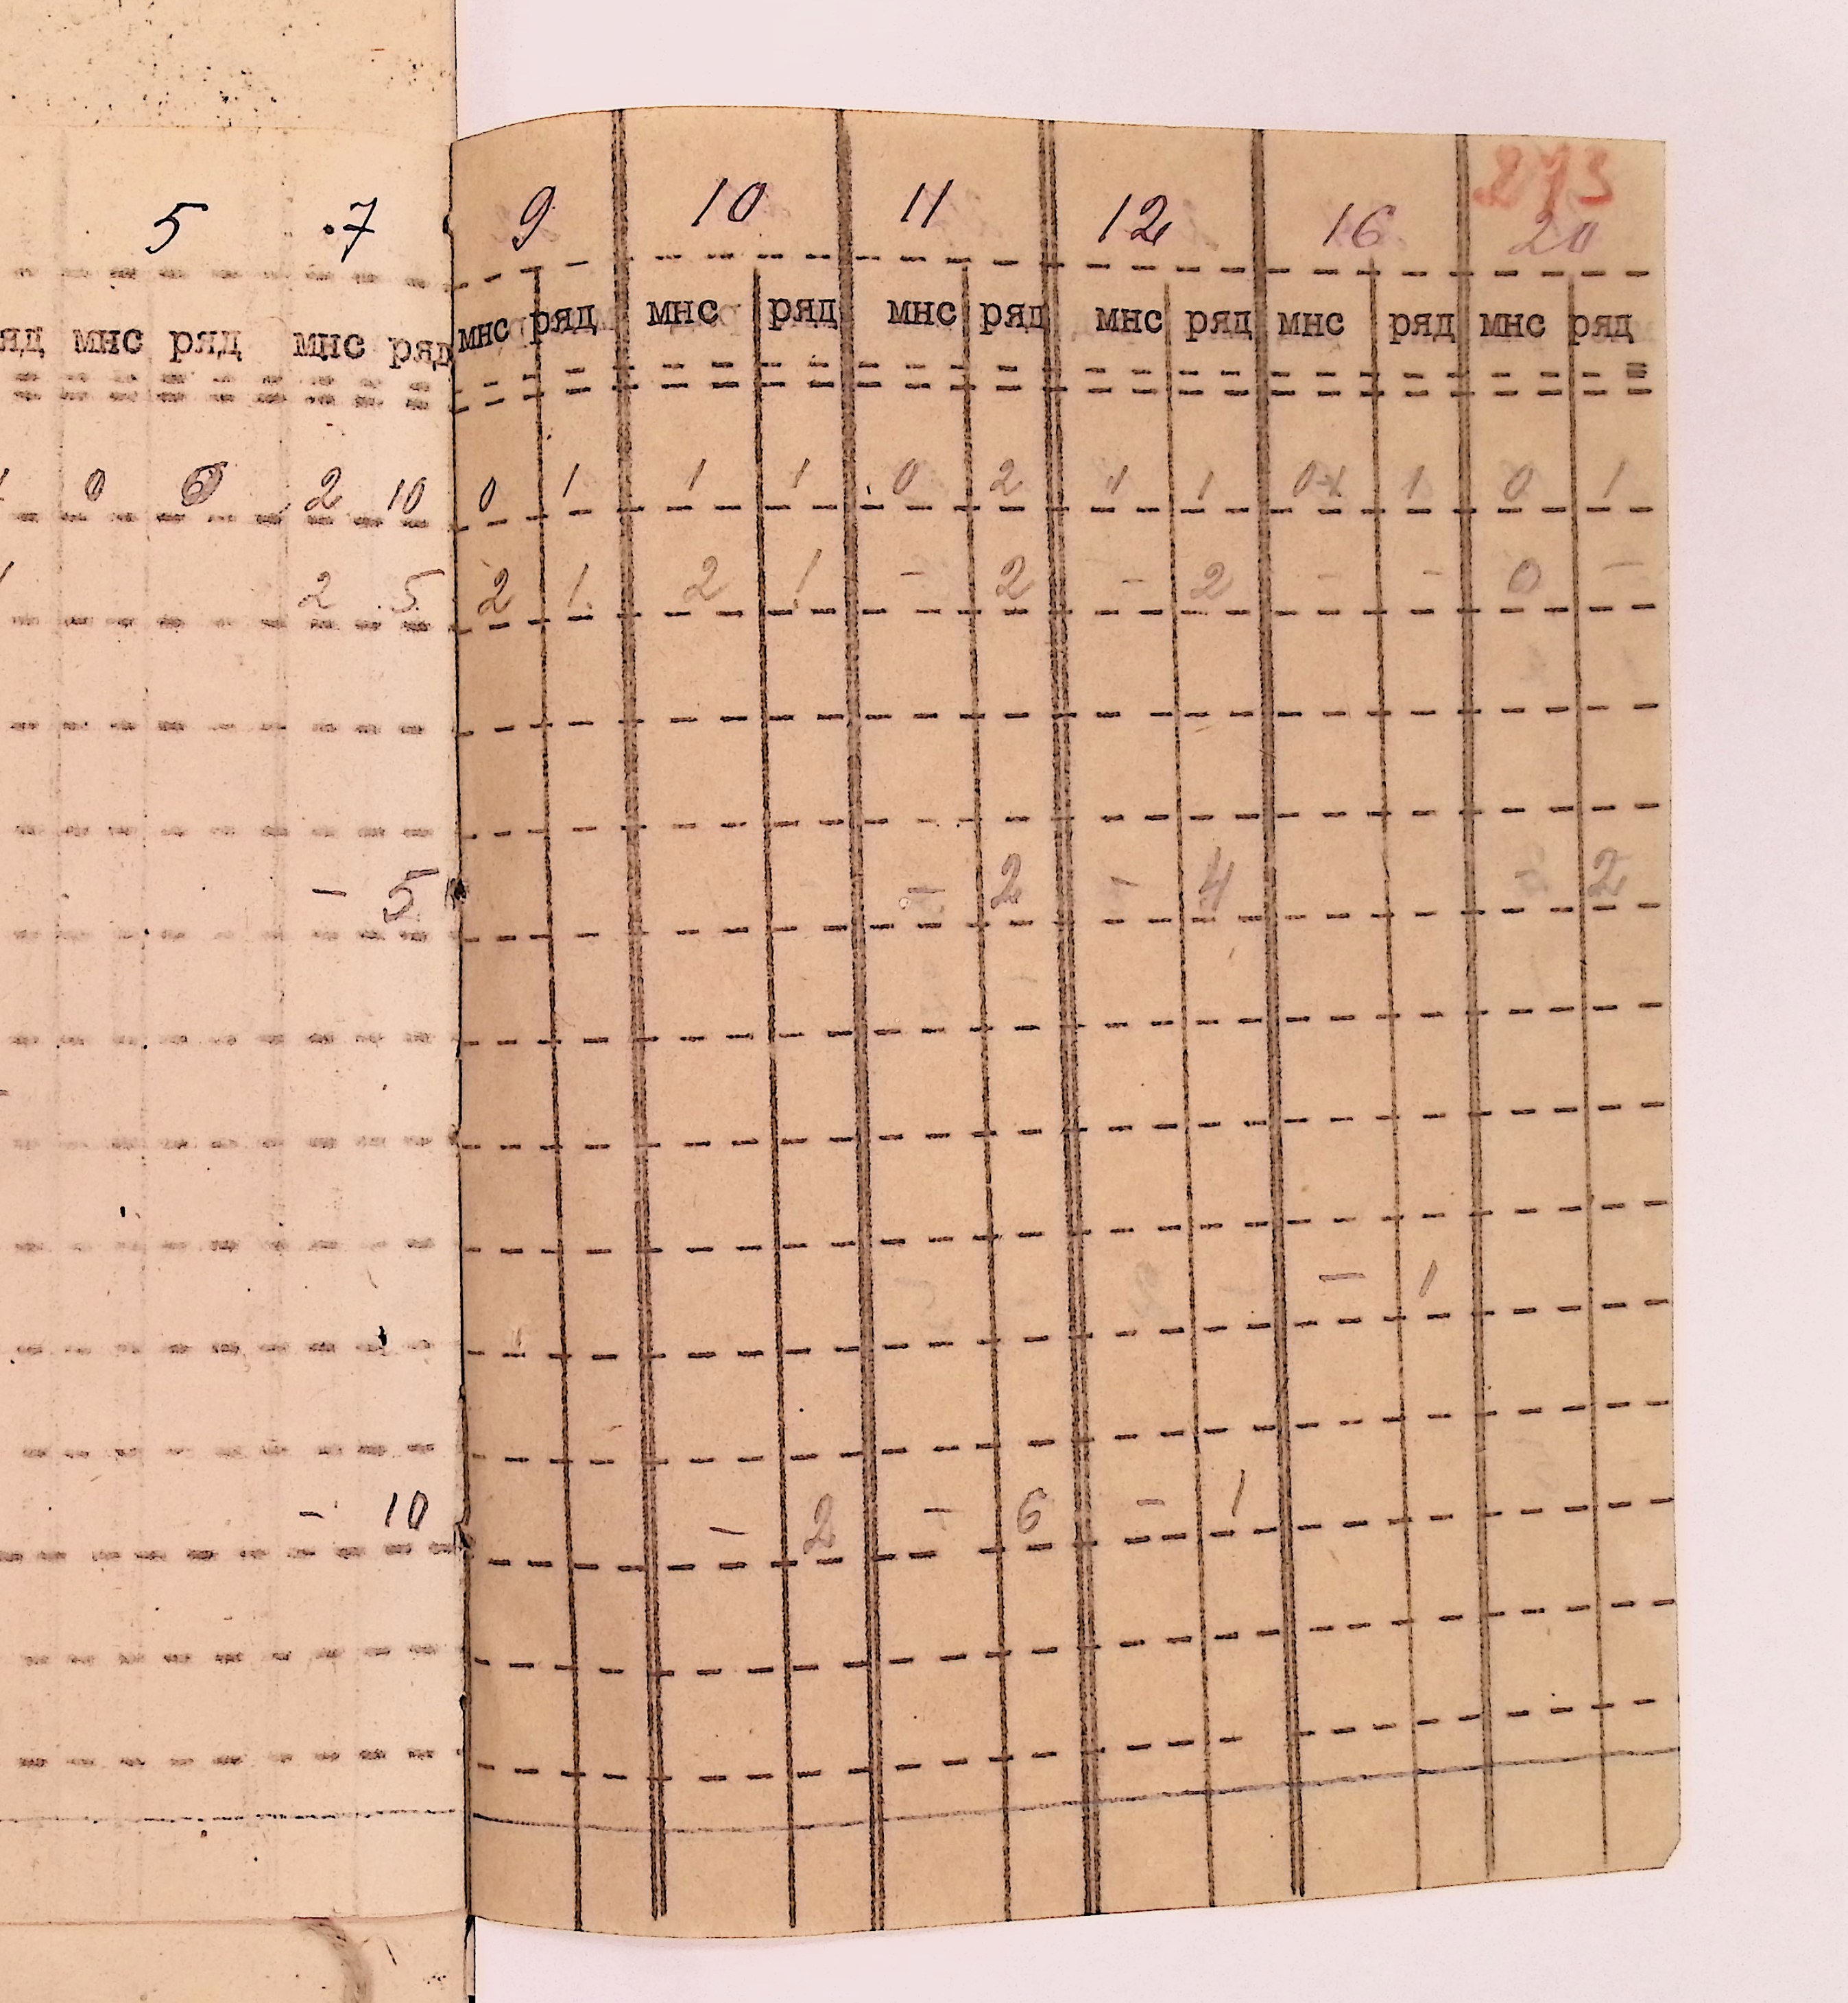 273
5 7 9 10 11 12 16 20
яд мнс ряд мнс ряд мнс ряд мнс ряд мнс ряд мнс ряд мнс ряд мнс ряд
1 0 2 10 0 1 1 1 0 2 1 1 0 1 0 1
1 2 5 2 1 2 1 - 2 - 2 - - 0 -
- 5 - 2 - 4 - 2
- 1
- 10 - 2 - 6 - 1